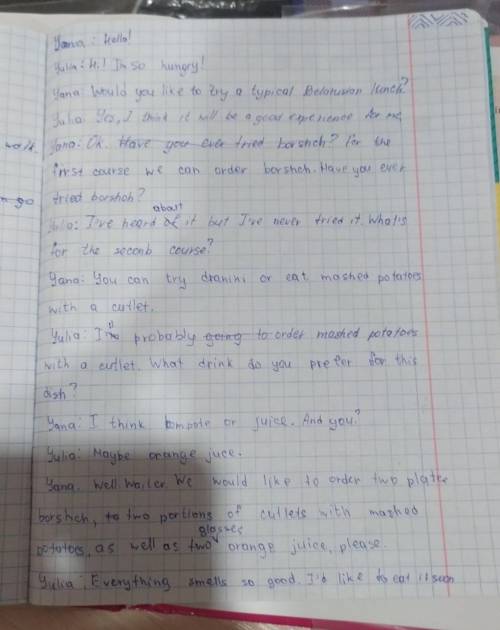 Yana: Hello!
Yulia: Hi! I'm so hungry!
Yana: Would you like to try a typical Belarusian lunch?
Yulia: Yes, I think it will be a good experience for me.
Yana: Ok. Have you ever tried borshch? For the
first course we can order borshch. Have you ever
tried borshch?
about
Yulia: I've heard of it but I've never tried it. What's
for the second course?
Yana: You can try dranini or eat mashed potatoes
with a cutlet.
Yulia: I'll probably going to order mashed potatoes
with a cutlet. What drink do you prefer for this
dish?
Yana: I think kompote or juice. And you?
Yulia: Maybe orange juce.
Yana. Well waiter. We would like to order two plates
borshch, to two portions of cutlets with mashed
glasses
potatoes, as well as two orange juice, please.
Yulia: Everything smells so good. I'd like to eat it soon